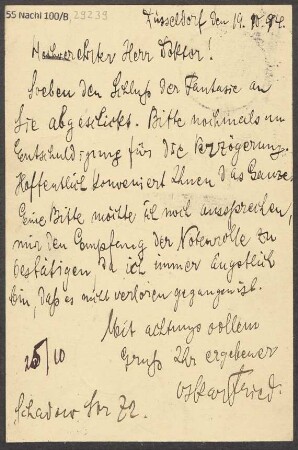 55 Nachl 100/B 29239
Düsseldorf den 19. 10. 94.
Hochverehrter Herr Doktor!
Soeben den Schluß der Fantasie an
Sie abgeschickt. Bitte nochmals um
Entschuldigung für die Verzögerung.
Hoffentlich konveniert Ihnen das Ganze.
Eine Bitte möchte ich noch aussprechen,
mir den Empfang der Notenrolle zu
bestätigen, da ich immer ängstlich
bin, daß es nicht verloren gegangen ist.
Mit achtungsvollem
Gruß Ihr ergebener
Oskar Fried.
25/10
Schadow Str 72.